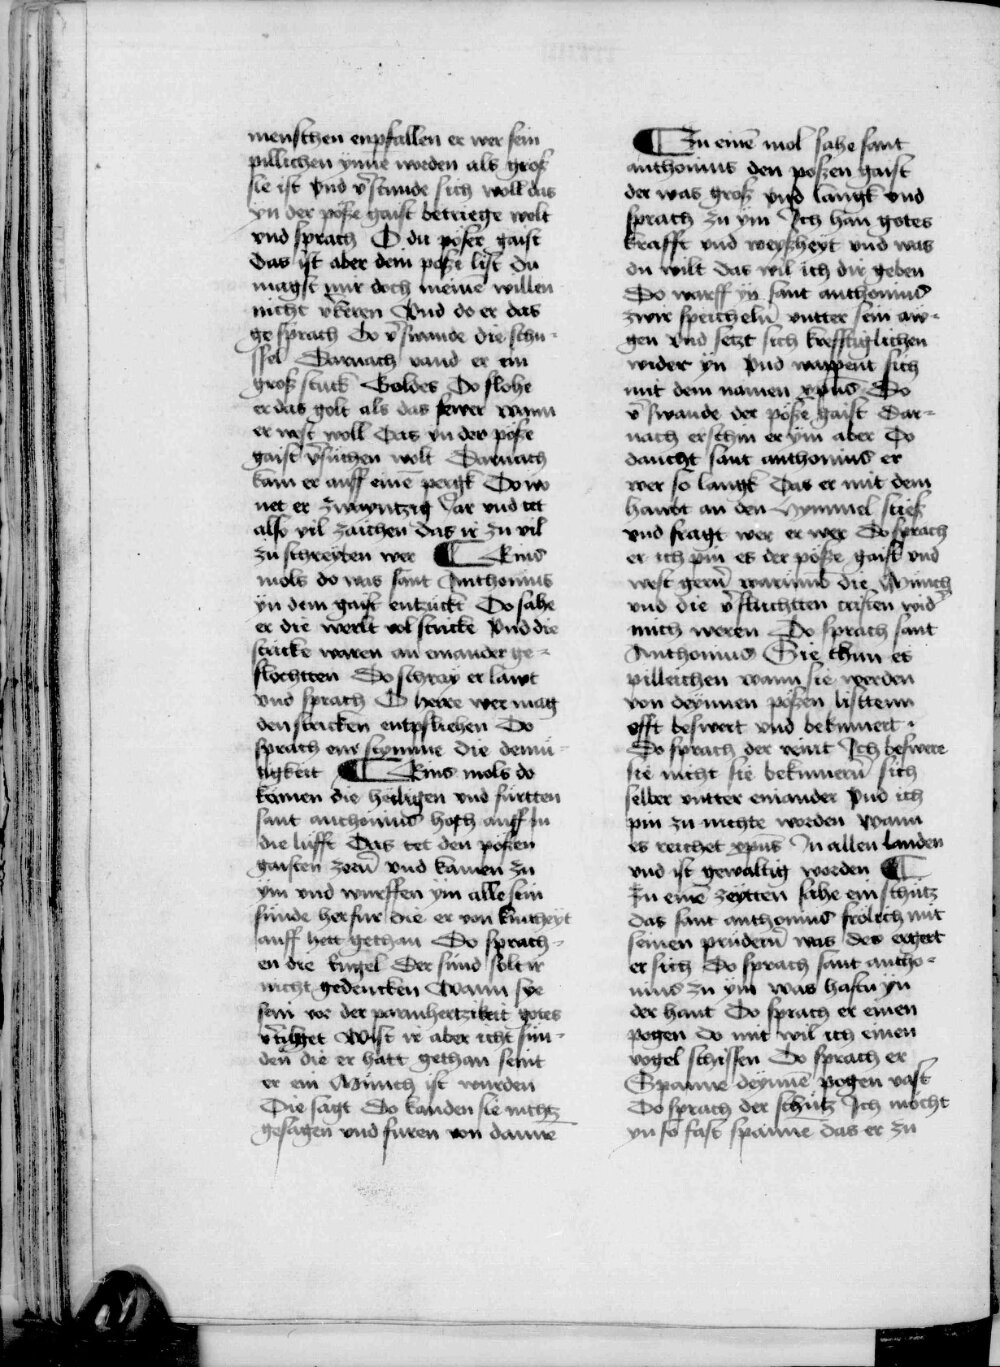 menschen enpfallen er wer sein
pillichen ynne worden als groß
sie ist Vnd v̄stunde sich woll das
yn der pöße gaist betriege wolt
vnd sprach O du pößer gaist
das ist aber dein pöße list du
magst mir doch meine willen
nicht v̄keren Vnd do er das
gesprach Do v̄swande die schu-
ssel Darnach vand er ein
groß stuck Goldes Do flohe
er das golt als das fewer wann
er west woll Das yn der pöße
gaist v̄suchen wolt Darnach
kam er auff einē pergk Do wo
net er zwayntzig Jar vnd tet
also vil zaichen das ir zu vil
zu schreyben wer ¶ Eins
mols do was sant Anthonius
yn dem gaist entzuckt Do sahe
er die werlt vol stricke Vnd die
stricke waren an einander ge-
flochtten Do schray er lawt
vnd sprach O herre wer mag
den stricken entpfliehen Do
sprach ein stymme die demu-
tigkeit ¶ Eins mols do
komen die heiligen vnd furtten
sant anthonius hoch auff jn
die lufft Das tet den pößen
gaisten zorn̄ vnd kamen zu
ym vnd wurffen ym alle sein
sunde herfur die er von kintheyt
auff hett gethan Do sprach-
en die Engel Der sund solt ir
nicht gedencken Wann sye
sein vor der parmhertzikeit gotes
v̄tilget Wist ir aber icht sun-
den die er hatt gethan seint
er ein Münch ist wurden
Die sagt Do kanden sie nichtz
gesagen vnd furen von danne
¶ Zu einē mol sahe sant
anthonius den poßen gaist
der was groß vnd langk vnd
sprach zu ym Ich han gotes
krafft vnd weyßheyt vnd was
du wilt das wil ich dir geben
Do warff yn sant anthonius
zwir speicheln̄ vntter sein aw-
gen vnd setzt sich krefftiglichen
wider yn Vnd wappent sich
mit dem namen xp̄us Do
v̄swande der pöße gaist Dar-
nach erschin er ym aber Do
daucht sant anthonius er
wer so langk Das er mit dem
haubt an den Hymmel stieß
vnd fragt wer er wer Do sprach
er ich pin es der pöße gaist vnd
west gern̄ warumb die Münch
vnd die v̄fluchtten cristen wid̄
mich weren Do sprach sant
Anthonius Sie thun es
pilleichen wann sie werden
von deynnen poßen listtenn
offt beswert vnd bekumert
Do sprach der veint Ich beswere
sie nicht sie bekumern̄ sich
selber vntter einander Vnd ich
pin zu nichte worden wann
es reichet xp̄us Jn allen landen
vnd ist gewaltig worden ¶
Zu einē zeytten sahe ein schutz
das sant anthonius frölich mit
seinen prudern̄ was des ergert
er sich Do sprach sant antho-
nius zu ym was hastu yn
der hant Do sprach er einen
pogen do mit wil ich einen
vogel schissen Do sprach er
Spanne deynnē pogen vast
Do sprach der schutz Ich möcht
yn so fast spanne das er zu